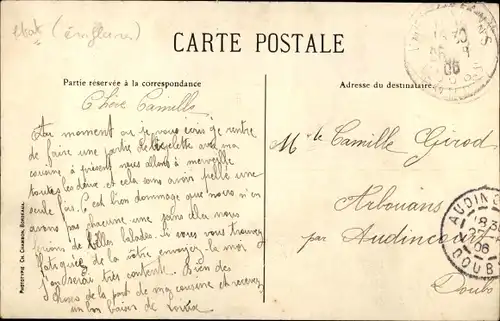 CARTE POSTALE
Partie réservée à la correspondance
Adresse du destinataire
Chère Camille
Au moment où je vous écris je rentre
de faire une partie de bicyclette avec ma
cousine, à présent nous allons à merveille
toutes les deux et cela sans avoir pellé une
seule fois. C'est bien dommage que nous n'en
avons pas chacune une nous
de belles balades. Si vous vous trouvez
de la votre envoyez la moi
j'en serai très contente. Bien des
choses de la part de ma cousine et recevez
un bon baiser de
Mlle Camille Girod
Arbouans
par Audincourt
Doubs
AUDINCOURT
DOUBS
06
PHOTOTYPIE CH. CHAMBON, BORDEAUX.